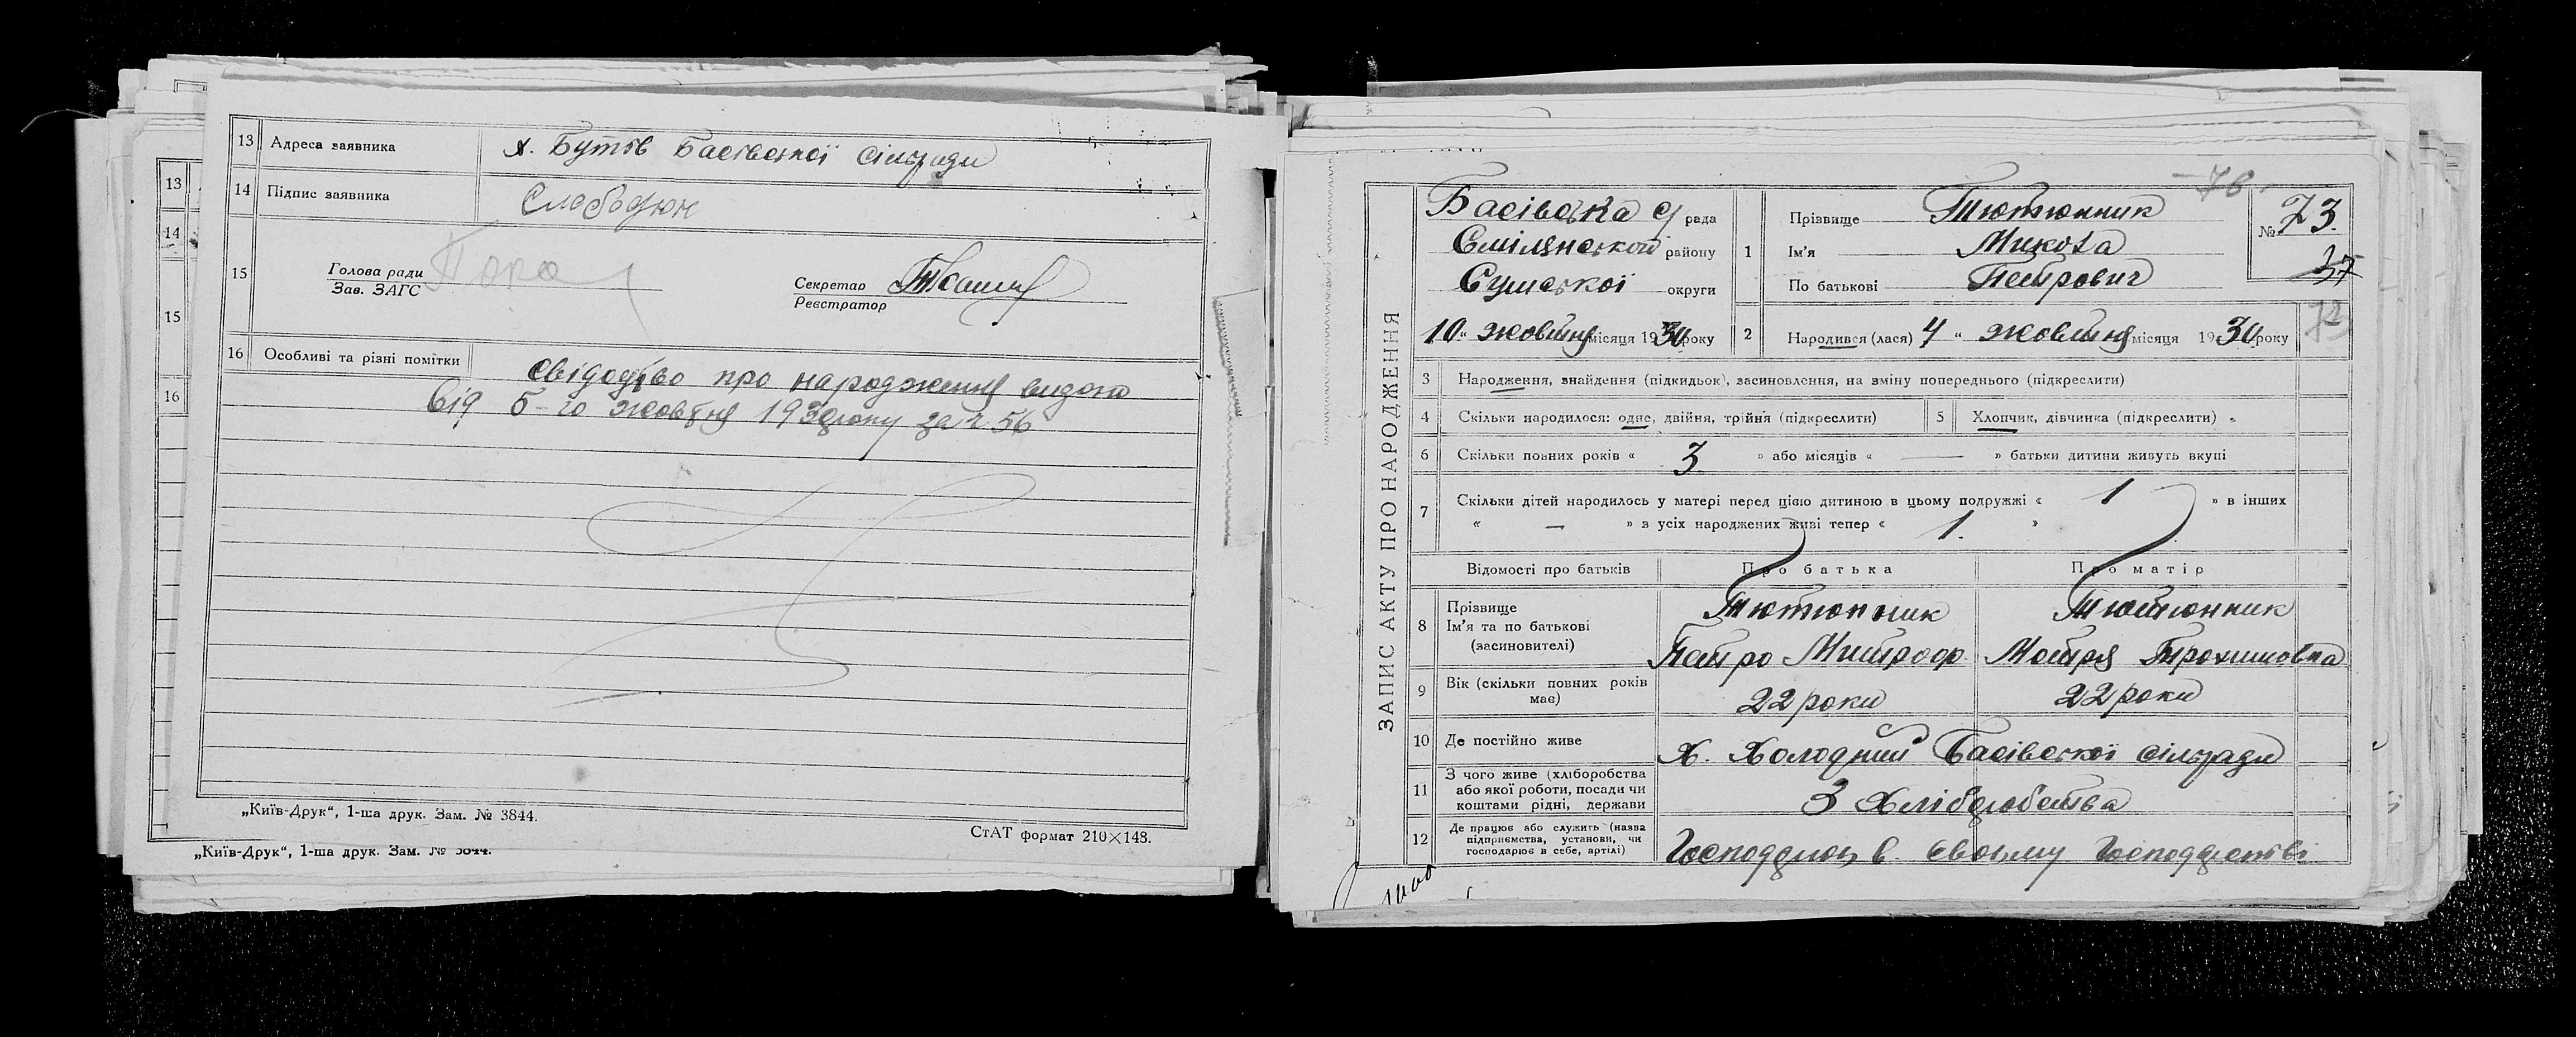 13 Адреса заявника х. Бутів Басівської сільради
14 Підпис заявника Слободюн
15 Голова ради
Зав. ЗАГС
Секретар
Реєстратор
16 Особливі та різні помітки свідоцтво про народження видано
від 5-го жовтня 1930 року за № 56
„Київ-Друк“, 1-ша друк. Зам. № 3844.
СтАТ формат 210×148.
13
14
15
16
„Київ-Друк“, 1-ша друк. Зам. № 3844.
ЗАПИС АКТУ ПРО НАРОДЖЕННЯ
76
Басівська с/рада
Смілянської району
Сумської округи
10 „ жовтня місяця 1930 року
1 Прізвище Тютюнник
Ім'я Микола
По батькові Петрович
№ 73.
37
2 Народився (лася) 4 „ жовтня місяця 1930 року
3 Народження, знайдення (підкидьок), засиновлення, на зміну попереднього (підкреслити)
4 Скільки народилося: одне, двійня, трійня (підкреслити) 5 Хлопчик, дівчинка (підкреслити)
6 Скільки повних років « 3 » або місяців « — » батьки дитини живуть вкупі
7 Скільки дітей народилось у матері перед цією дитиною в цьому подружжі « 1 » в інших
« — » з усіх народжених живі тепер « 1. »
Відомості про батьків Про батька Про матір
8 Прізвище Тютюнник Тютюнник
Ім'я та по батькові
(засиновителі) Петро Митроф. Мотря Трохимовна
9 Вік (скільки повних років має) 22 роки 22 роки
10 Де постійно живе х. Холодний Басівської сільради
11 З чого живе (хліборобства
або якої роботи, посади чи
коштами рідні, держави З хліборобства
12 Де працює або служить (назва
підприємства, установи, чи
господарює в себе, артілі) Господарює в своєму господарстві
1000